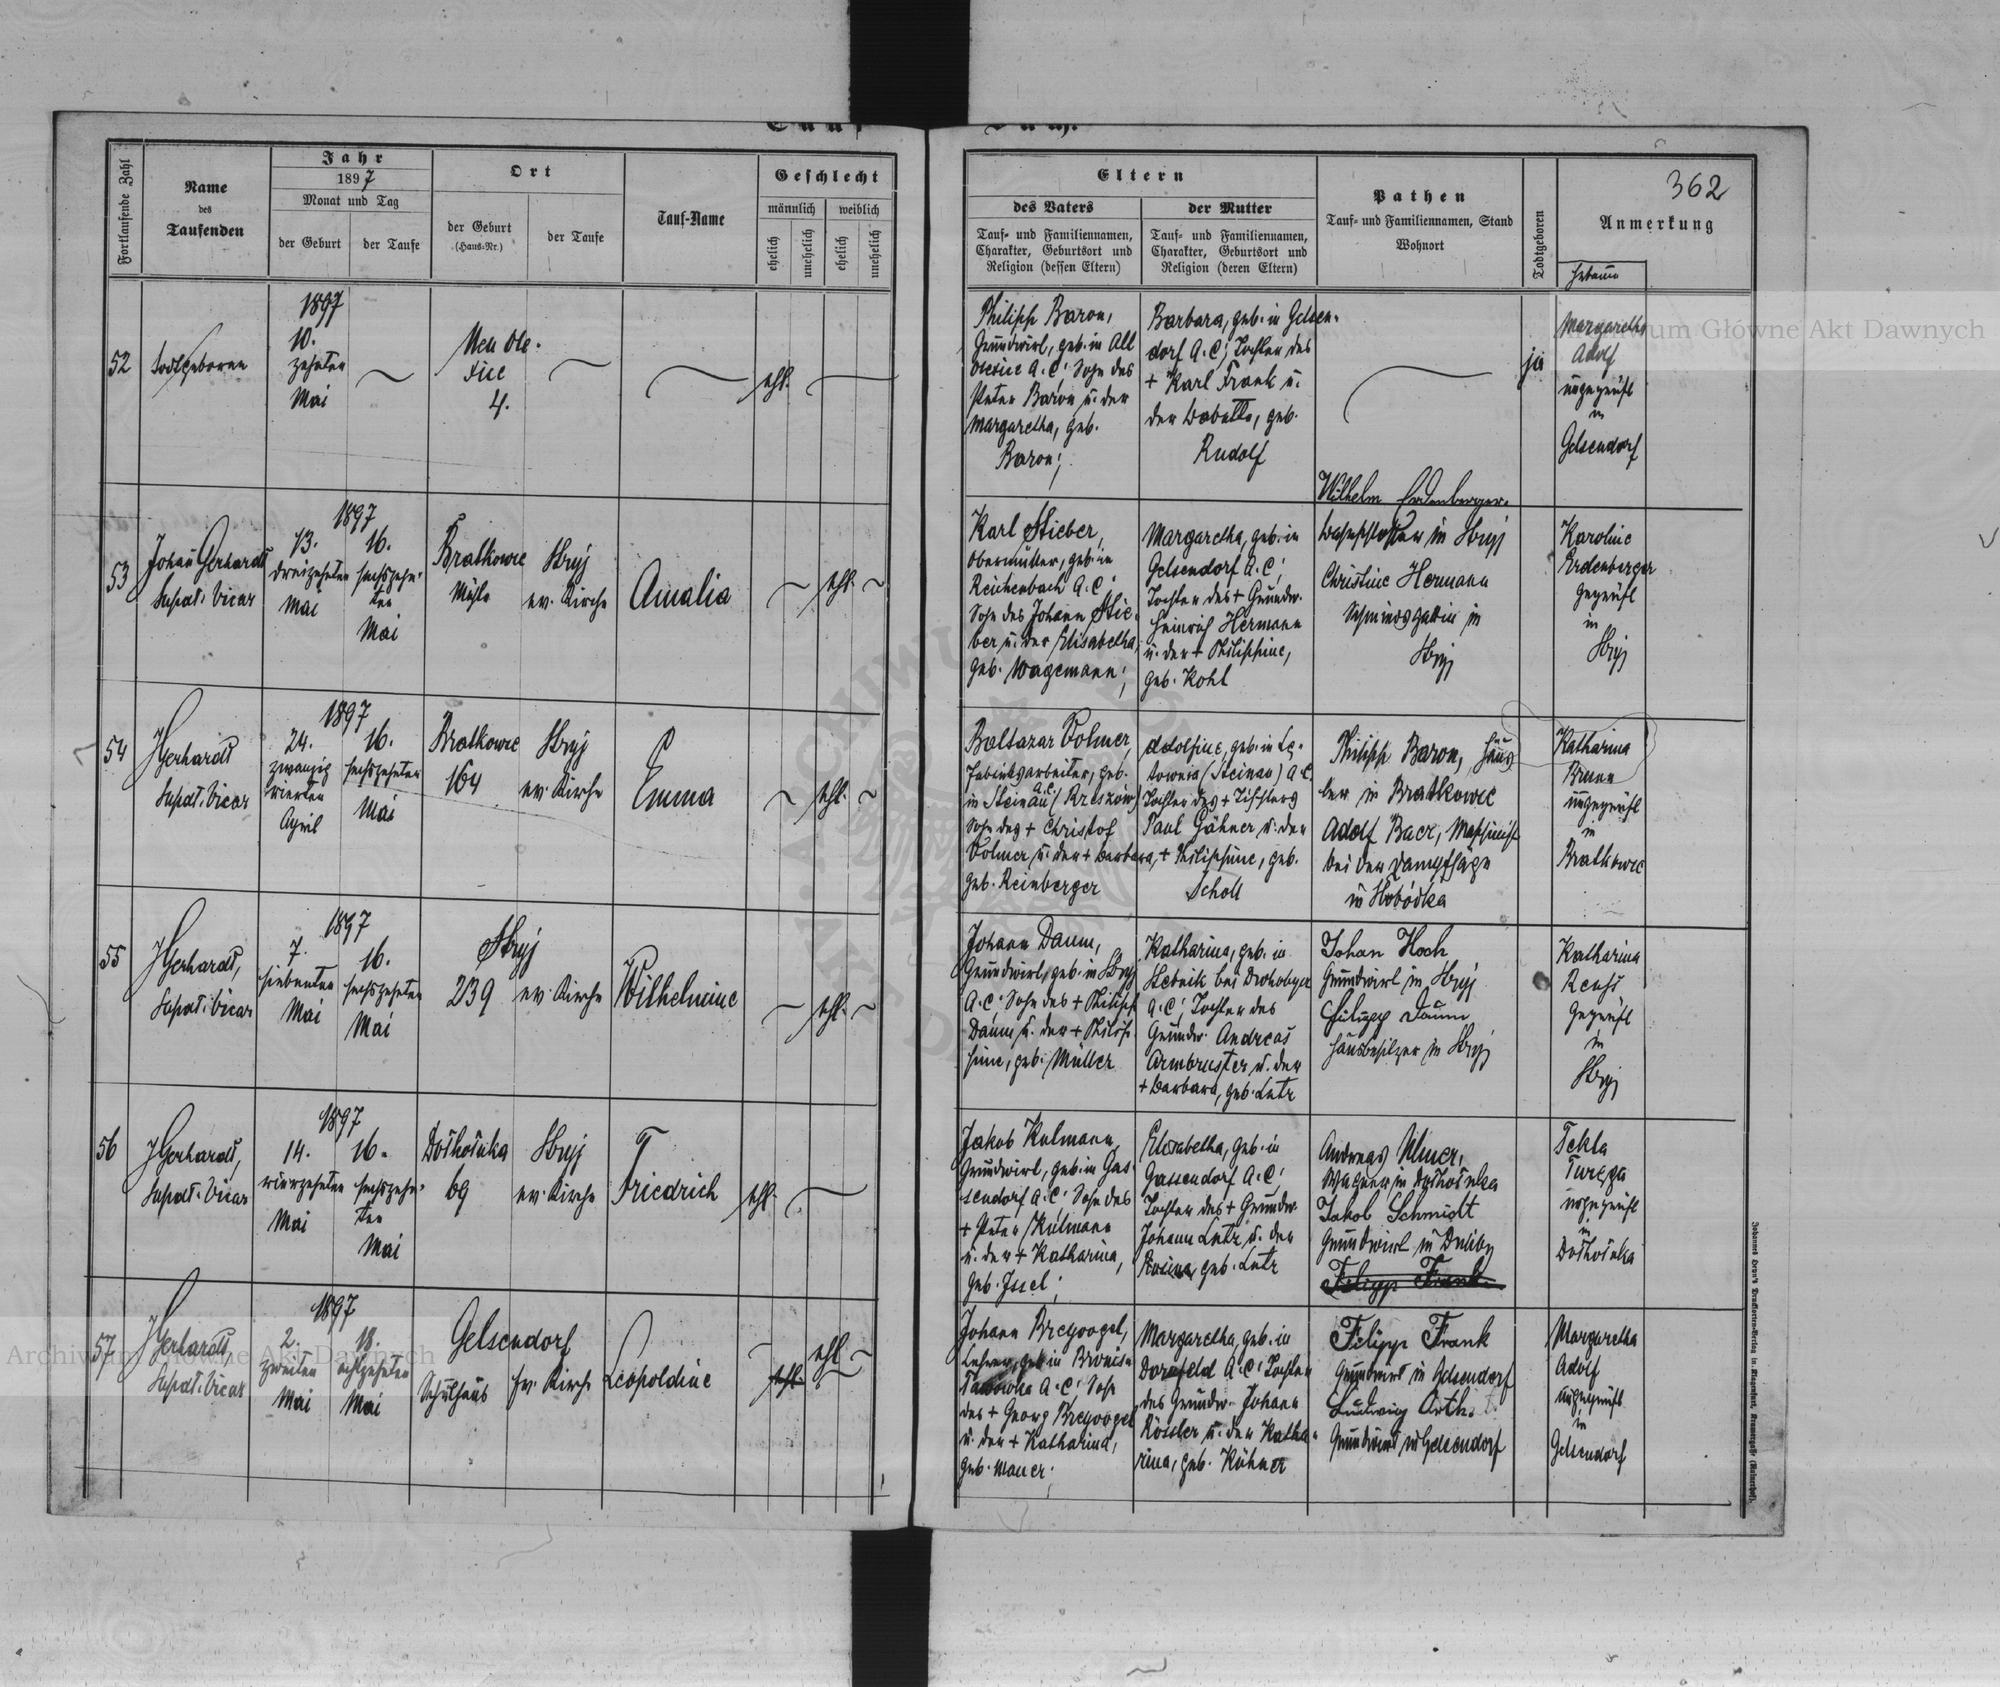 362
Fortlaufende Zahl
Name
des
Taufenden
Jahr
1897
Monat und Tag
der Geburt
der Taufe
Ort
der Geburt
(Haus-Nr.)
der Taufe
Tauf-Name
Geschlecht
männlich
weiblich
ehelich
unehelich
ehelich
unehelich
Eltern
des Vaters
Tauf- und Familiennamen,
Charakter, Geburtsort und
Religion (dessen Eltern)
der Mutter
Tauf- und Familiennamen,
Charakter, Geburtsort und
Religion (deren Eltern)
Pathen
Tauf- und Familiennamen, Stand
Wohnort
Todtgeboren
Anmerkung
52
todtgeboren
1897
10.
zehnten
Mai
4.
ehl.
Philipp Baron,
Grundwirt, geb. in Alt
A.C! Sohn des
Peter Baron u. der
Margaretha, geb.
Baron;
Barbara, geb. in Gelsen-
dorf A.C! Tochter des
+ Karl Frank u.
der Babette, geb.
Rudolf
ja
Margaretha
Adolf
ungeprüft
in
Gelsendorf
53
Johan Gerhardt
Supdt. Vicar
1897
13.
dreizehnten
Mai
16.
sechszehn-
ten
Mai
Bratkowce
Mühle
Stryj
ev. Kirche
Amalia
ehl.
Karl Stieber,
Obermüller, geb. in
Reichenbach A.C!
Sohn des Johann Stie-
ber u. der Elisabetha,
geb. Wagemann;
Margaretha, geb. in
Gelsendorf A.C!
Tochter des + Grundw.
Heinrich Hermann
u. der + Philippine,
geb. Kohl
Wilhelm Erdenberger
in Stryj
Christine Hermann
Schmiedsgattin in
Stryj
Karoline
Erdenberger
geprüft
in
Stryj
54
JGerhardt
Supdt. Vicar
1897
24.
zwanzig
vierten
April
16.
sechszehnten
Mai
Bratkowce
164
Stryj
ev. Kirche
Emma
ehl.
Baltazar Volmer,
Fabriksarbeiter, geb.
in Steinau
Sohn des + Christof
Volmer u. der + Barbara,
geb. Reinberger
Adolfine, geb. in
(Steinau) A.C.
Tochter des + Tischlers
Paul Gähner u. der
+ Philippine, geb.
Scholl
Philipp Baron,
in Bratkowce
Adolf Baer, Maschinist
bei der Dampfsäge
in Slobodka
Katharina
Braun
ungeprüft
in
Bratkowce
55
JGerhardt,
Supdt. Vicar
1897
7.
siebenten
Mai
16.
sechszehnten
Mai
Stryj
239
ev. Kirche
Wilhelmine
ehl.
Johann Daum,
Grundwirt, geb. in Stryj
A.C! Sohn des + Philipp
Daum u. der + Philip-
pine, geb. Müller
Katharina, geb. in
Stebnik bei Drohobycz
A.C! Tochter des
Grundw. Andreas
Armbruster u. der
+ Barbara, geb. Lutz
Johan Hoch
Grundwirt in Stryj
Philipp Daum
Hausbesitzer in Stryj
Katharina
geprüft
in
Stryj
56
JGerhardt,
Supdt. Vicar
1897
14.
vierzehnten
Mai
16.
sechszehn-
ten
Mai
69
Stryj
ev. Kirche
Friedrich
ehl.
Jakob Kulmann,
Grundwirt, geb. in Gas-
sendorf A.C! Sohn des
+ Peter Kulmann
u. der + Katharina,
geb. Issel;
Elisabetha, geb. in
Gassendorf A.C!
Tochter des + Grundw.
Johann Lutz u. der
Rosina, geb. Lutz
Andreas Ulmer,
Wagner in
Jakob Schmidt
Grundwirt in Duliby
Filipp Frank
Tekla
ungeprüft
in
57
JGerhardt,
Supdt. Vicar
1897
2.
zweiten
Mai
18.
achtzehnten
Mai
Gelsendorf
Schulhaus
ev. Kirche
Leopoldine
ehl.
ehl.
Johann Breyvogel,
Lehrer, geb. in
A.C! Sohn
des + Georg Breyvogel
u. der + Katharina,
geb. Mauer;
Margaretha, geb. in
Dornfeld A.C! Tochter
des Grundw. Johann
Rössler u. der Katha-
rina, geb. Kühner
Filipp Frank
Grundwirt in Gelsendorf
Ludwig Orth
Grundwirt in Gelsendorf
Margaretha
Adolf
ungeprüft
in
Gelsendorf
Archiwum Główne Akt Dawnych
Archiwum Główne Akt Dawnych